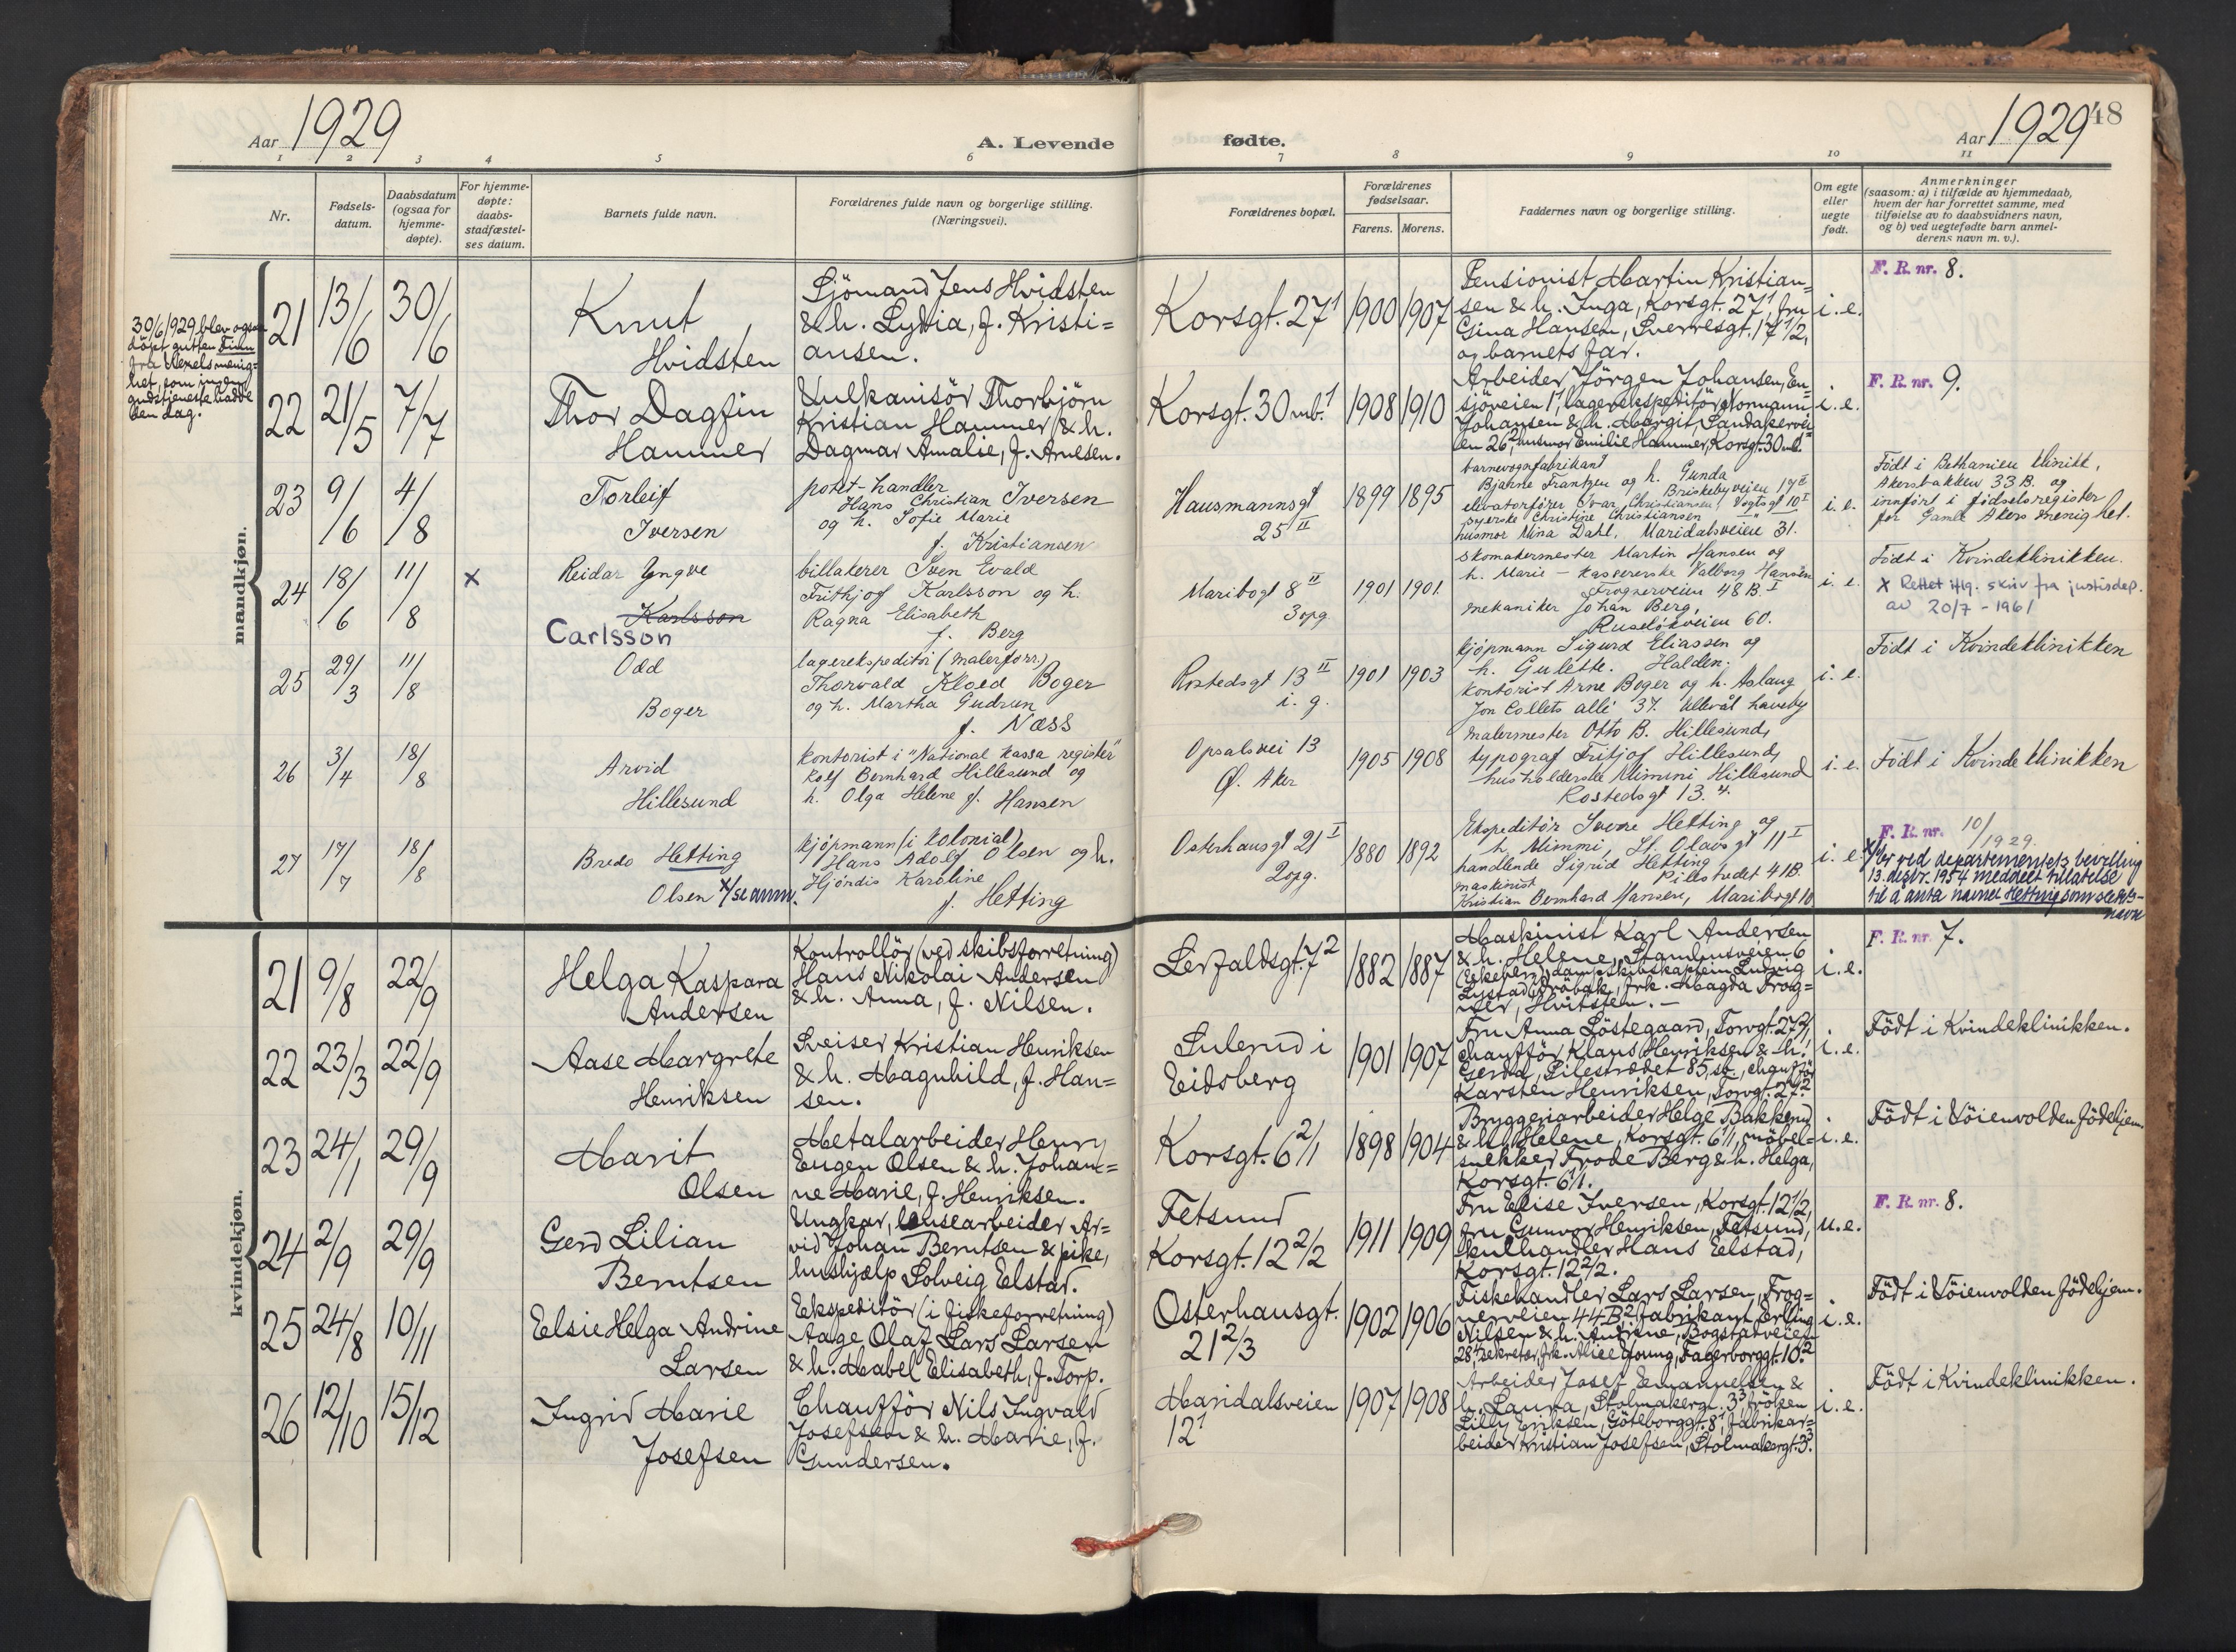 Aar 1929
A. Levende
fødte.
Aar 1929
48
1 2 3 4 5 6 7 8 9 10 11
Nr.
Fødsels-
datum.
Daabsdatum
(ogsaa for
hjemme-
døpte).
For hjemme-
døpte:
daabs-
stadfæstel-
ses datum.
Barnets fulde navn.
Forældrenes fulde navn og borgerlige stilling.
(Næringsvei).
Forældrenes bopæl.
Forældrenes
fødselsaar.
Farens. Morens.
Faddernes navn og borgerlige stilling.
Om egte
eller
uegte
født.
Anmerkninger
(saasom: a) i tilfælde av hjemmedaab,
hvem der har forrettet samme, med
tilføielse av to daabsvidners navn,
og b) ved uegtefødte barn anmel-
derens navn m. v.).
30/6 1929 blev ogsaa
döpt gutten Finn
fra Wexels menig-
het, som ingen
gudstjeneste hadde
den dag.
mandkjøn.
21 13/6 30/6
Knut
Hvidsten
Sjömand Jens Hvidsten
& h. Lydia, f. Kristi=
ansen.
Korsgt. 27¹ 1900 1907
Pensionist Martin Kristian=
sen & h. Inga, Korsgt. 27¹, fru
Gina Hansen, Sverresgt. 17 1/2,
og barnets far.
i. e.
F. R. nr. 8.
22 21/5 7/7
Thor Dagfin
Hammer
Vulkanisör Thorbjörn
Kristian Hammer & h.
Dagmar Amalie, f. Arnesen.
Korsgt. 30 mb.¹ 1908 1910
Arbeider Jörgen Johansen, En
sjöveien 1¹, lagerekspeditör Normann
Johansen & h. Margit, Sandakervei=
en 26², husmor Emilie Hammer, Korsgt. 30 mb.
i. e.
F. R. nr. 9.
23 9/6 4/8
Thorleif
Iversen
potet-handler
Hans Christian Iversen
og h. Sofie Marie
f. Kristiansen
Hausmannsgt
25 II
1899 1895
barnevognfabrikant
Bjarne Frantzen og h. Gunda
Briskebyveien 17 II
elevatorfører Ivar Christiansen, Vogtsgt 10 I
syerske Christine Christiansen
husmor Mina Dahl, Maridalsveien 31.
i. e.
Født i Bethanien klinikk,
Akersbakken 33 B. og
innført i fødselsregister
for Gamle Akers menighet.
24 18/6 11/8 x
Reidar Yngve
Karlsson
Carlsson
billakerer Sven Evald
Frithjof Karlsson og h.
Ragna Elisabeth
f. Berg
Maribogt 8 II
3 opg.
1901 1901
skomakermester Martin Hansen og
h. Marie – kassererske Valborg Hansen
Frognerveien 48 B. I
mekaniker Johan Berg,
Ruseløkveien 60.
i. e.
Født i Kvindeklinikken.
x Rettet iflg. skriv fra justisdep.
av 20/7 - 1961
25 29/3 11/8
Odd
Boger
lagerekspeditør (malerforr.)
Thorvald Kloed Boger
og h. Martha Gudrun
f. Næss
Rostedsgt 13 II
i. g.
1901 1903
kjøpmann Sigurd Eliassen og
h. Gulette. Halden.
kontorist Arne Boger og h. Aslaug
Jon Collets allé 37. Ullevål haveby
i. e.
Født i Kvindeklinikken
26 3/4 18/8
Arvid
Hillesund
kontorist i "National kassa register"
Rolf Bernhard Hillesund og
h. Olga Helene f. Hansen
Opsalsvei 13
Ø. Aker
1905 1908
malermester Otto B. Hillesund,
typograf Fritjof Hillesund,
husholderske Mimmi Hillesund
Rostedsgt 13. 4.
i. e.
Født i Kvindeklinikken
27 17/7 18/8
Bredo Hetting
Olsen x/ se anm.
kjøpmann (i kolonial)
Hans Adolf Olsen og h.
Hjørdis Karoline
f. Hetting
Osterhausgt 21 I
2 opg.
1880 1892
Ekspeditör Sverre Hetting og
h. Mimmi, St. Olavs gt 11 I
handlende Sigrid Hetting, Pilestredet 41 B.
maskinist
Kristian Bernhard Hansen, Maribogt 10
i. e.
F. R. nr. 10/1929.
x/ Er ved departementets bevilling
13. desbr. 1954 meddelt tillatelse
til å anta navnet Hetting som slekts-
navn
kvindekjøn.
21 9/8 22/9
Helga Kaspara
Andersen
Kontrollör (ved skibsforretning)
Hans Nikolai Andersen
& h. Anna, f. Nilsen.
Lerfaldsgt. 7² 1882 1887
Maskinist Karl Andersen
& h. Helene, Stamhusveien 6
(Ekeberg), dampskibskaptein Ludvig
Lystad, Dröbak, frk. Magda Frog=
ner, Hvitsten. –
i. e.
F. R. nr. 7.
22 23/3 22/9
Aase Margrete
Henriksen
Sveiser Kristian Henriksen
& h. Magnhild, f. Han=
sen.
Sulerud i
Eidsberg
1901 1907
Fru Anna Löstegaard, Torvgt. 27 2/1,
chaufför Klaus Henriksen & h.
Gerda, Pilestrædet 85, st., chaufför
Karsten Henriksen, Torvgt. 27.²
i. e.
Födt i Kvindeklinikken.
23 24/1 29/9
Marit
Olsen
Metalarbeider Henry
Eugen Olsen & h. Johan=
ne Marie, f. Henriksen.
Korsgt. 6 2/1 1898 1904
Bryggeriarbeider Helge Bakkerud
& h. Helene, Korsgt. 6 1/1, möbel=
snekker Frode Berg & h. Helga,
Korsgt. 6 1/1.
i. e.
Födt i Vöienvolden födehjem.
24 2/9 29/9
Gerd Lilian
Berntsen
Ungkar, lensearbeider Ar=
vid Johan Berntsen & pike,
hushjælp Solveig Elstad.
Fetsund
Korsgt. 12 2/2
1911 1909
Fru Elise Iversen, Korsgt. 12 1/2,
fru Gunvor Henriksen, Fetsund,
kulhandler Hans Elstad,
Korsgt. 12 2/2.
u. e.
F. R. nr. 8.
25 24/8 10/11
Elsie Helga Andrine
Larsen
Ekspeditör (i fiskeforretning)
Aage Olaf Lars Larsen
& h. Mabel Elisabeth, f. Torp.
Osterhausgt.
21 2/3
1902 1906
Fiskehandler Lars Larsen, Frog=
nerveien 44 B², fabrikant Erling
Nilsen & h. Andrine, Bogstadveien
28¹, sekretær, frk. Alice Young, Fagerborggt. 10.²
i. e.
Födt i Vöienvolden födehjem.
26 12/10 15/12
Ingrid Marie
Josefsen
Chaufför Nils Ingvald
Josefsen & h. Marie, f.
Gundersen.
Maridalsveien
12¹
1907 1908
Arbeider Josef Emanuelsen &
h. Laura, Stolmakergt. 3³, fröken
Lilly Eriksen, Göteborggt. 8¹, fabrikar=
beider Kristian Josefsen, Stolmakergt. 3.³
i. e.
Födt i Kvindeklinikken.